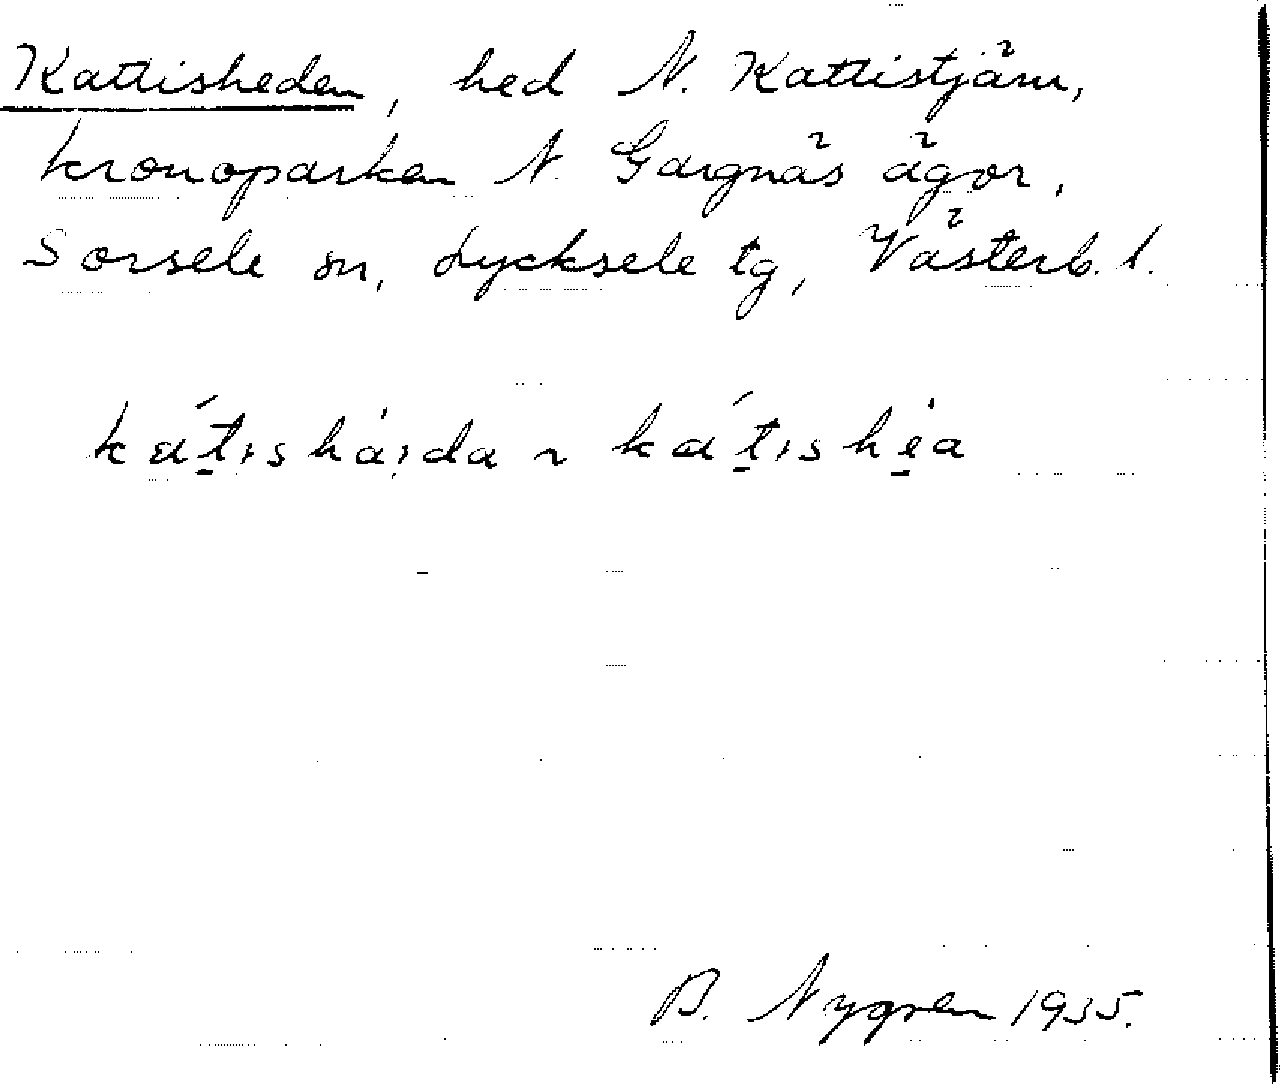 Kattisheden, hed N. Kattistjärn,
kronoparken N. Gargnäs ägor,
Sorsele sn, Lycksele tg, Västerb. l.
kát̠ishȧi̩da ~ kát̠ishė̠a
B. Nygren 1935.